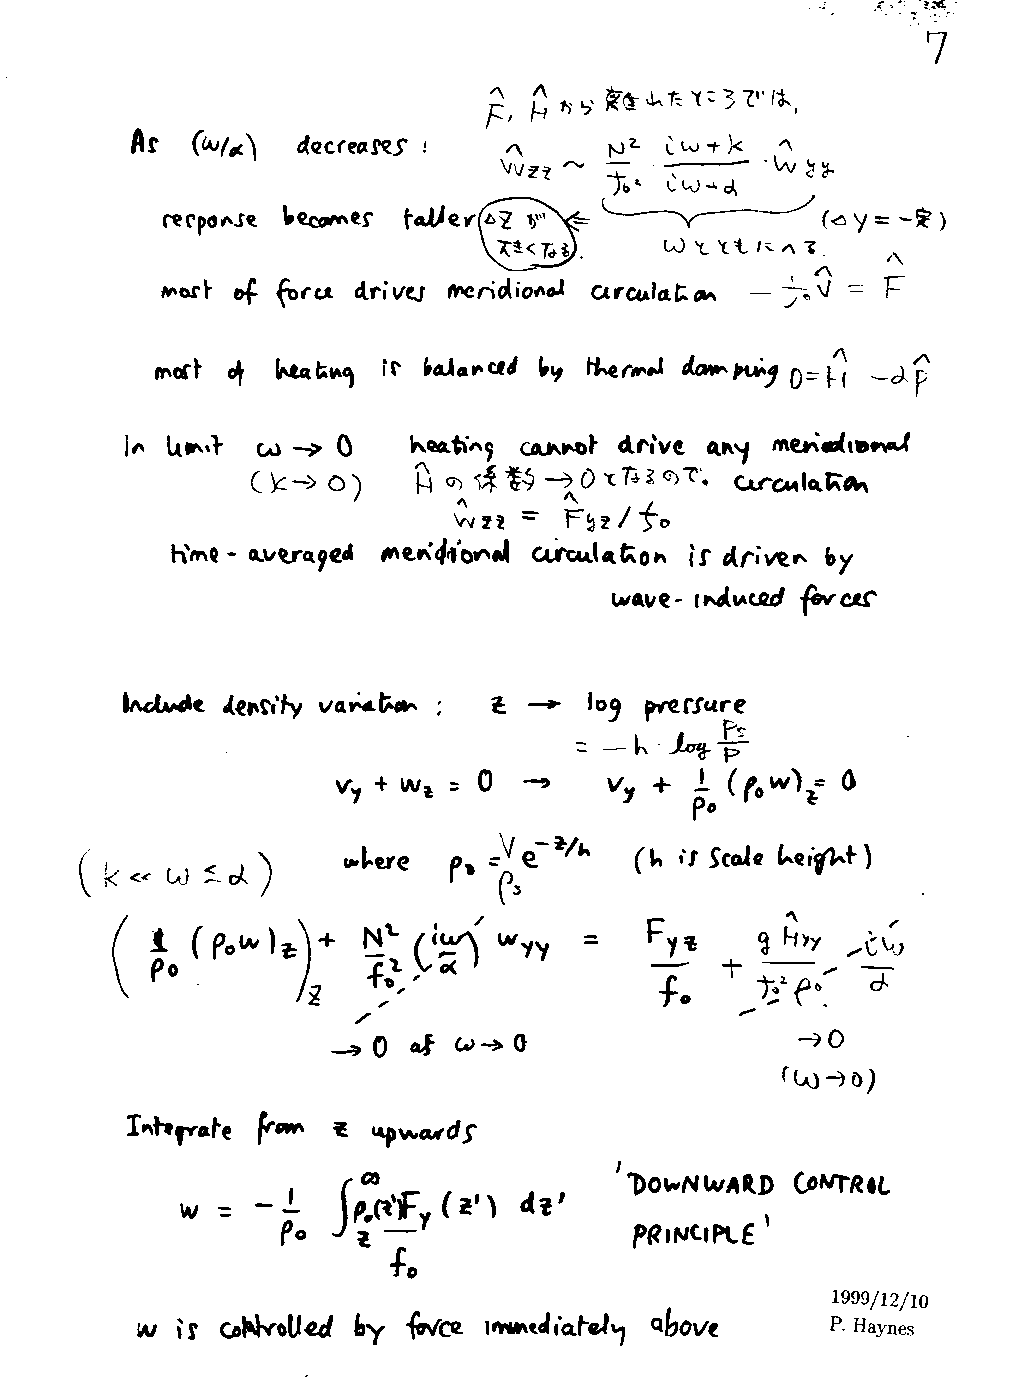 7
F̂, Ĥ から離れたところでは,
As (ω/α) decreases : ŵzz ~ N²/f₀² · (iω+k)/(iω+α) · ŵyy
response becomes taller (Δzが大きくなる) ⇐ ωとともにへる. (Δy=一定)
most of force drives meridional circulation − f₀v̂ = F̂
most of heating is balanced by thermal damping 0=Ĥ −αρ̂
In limit ω → 0 heating cannot drive any meridional
(k→0) Ĥの係数→0となるので. circulation
ŵzz = F̂yz / f₀
time-averaged meridional circulation is driven by
wave-induced forces
Include density variation : z → log pressure
= −h · log Ps/P
vy + wz = 0 → vy + 1/ρ₀ (ρ₀w)z = 0
(k << ω ≲ α) where ρ₀ = ρs e^(−z/h) (h is scale height)
(1/ρ₀ (ρ₀w)z)z + N²/f₀² (iω/α) wyy = Fyz/f₀ + gĤyy/f₀²ρ₀ iω/α
→ 0 as ω → 0 → 0
(ω→0)
Integrate from z upwards
w = − 1/ρ₀ ∫z^∞ ρ₀(z')Fy(z')/f₀ dz' 'DOWNWARD CONTROL
PRINCIPLE'
w is controlled by force immediately above
1999/12/10
P. Haynes